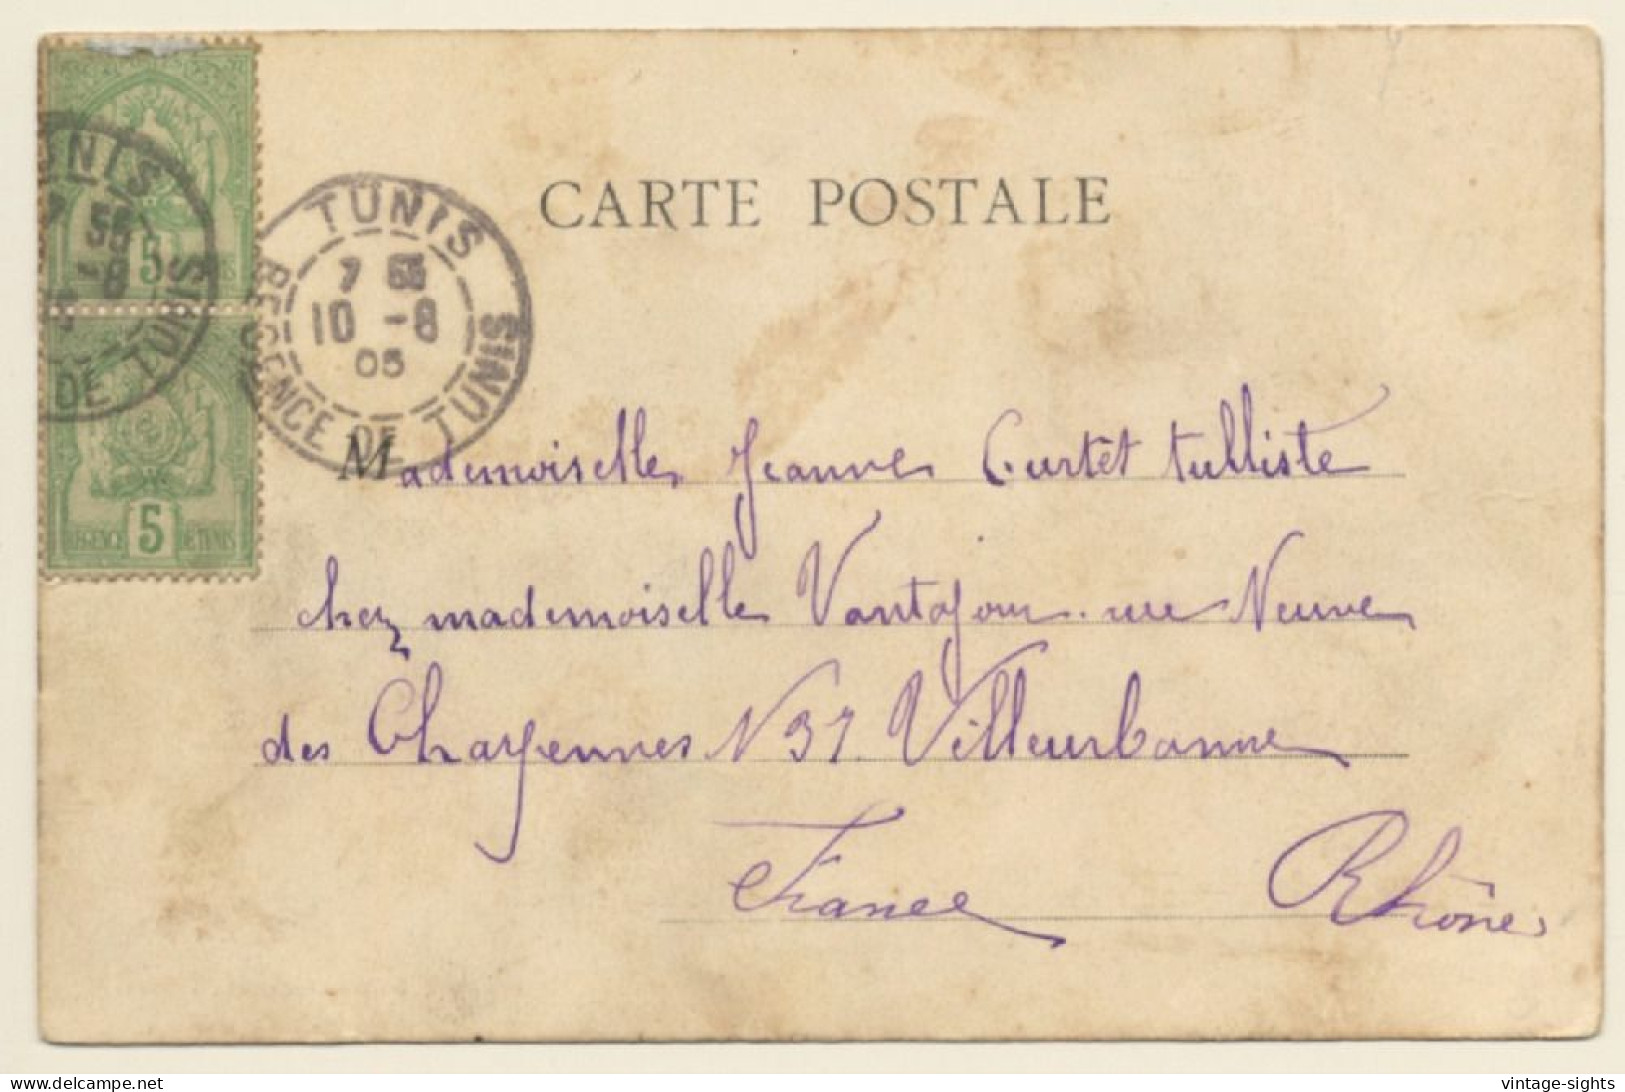 CARTE POSTALE
TUNIS
7 55
10 -8
05
REGENCE DE TUNIS
UNIS
7 55
-8
DE TUNIS
5
REGENCE 5 DE TUNIS
Mademoiselle Jeanne Curtet tulliste
chez mademoiselle Vantajour rue Neuve
des Charpennes N 37 Villeurbanne
France Rhône
vintage-sights